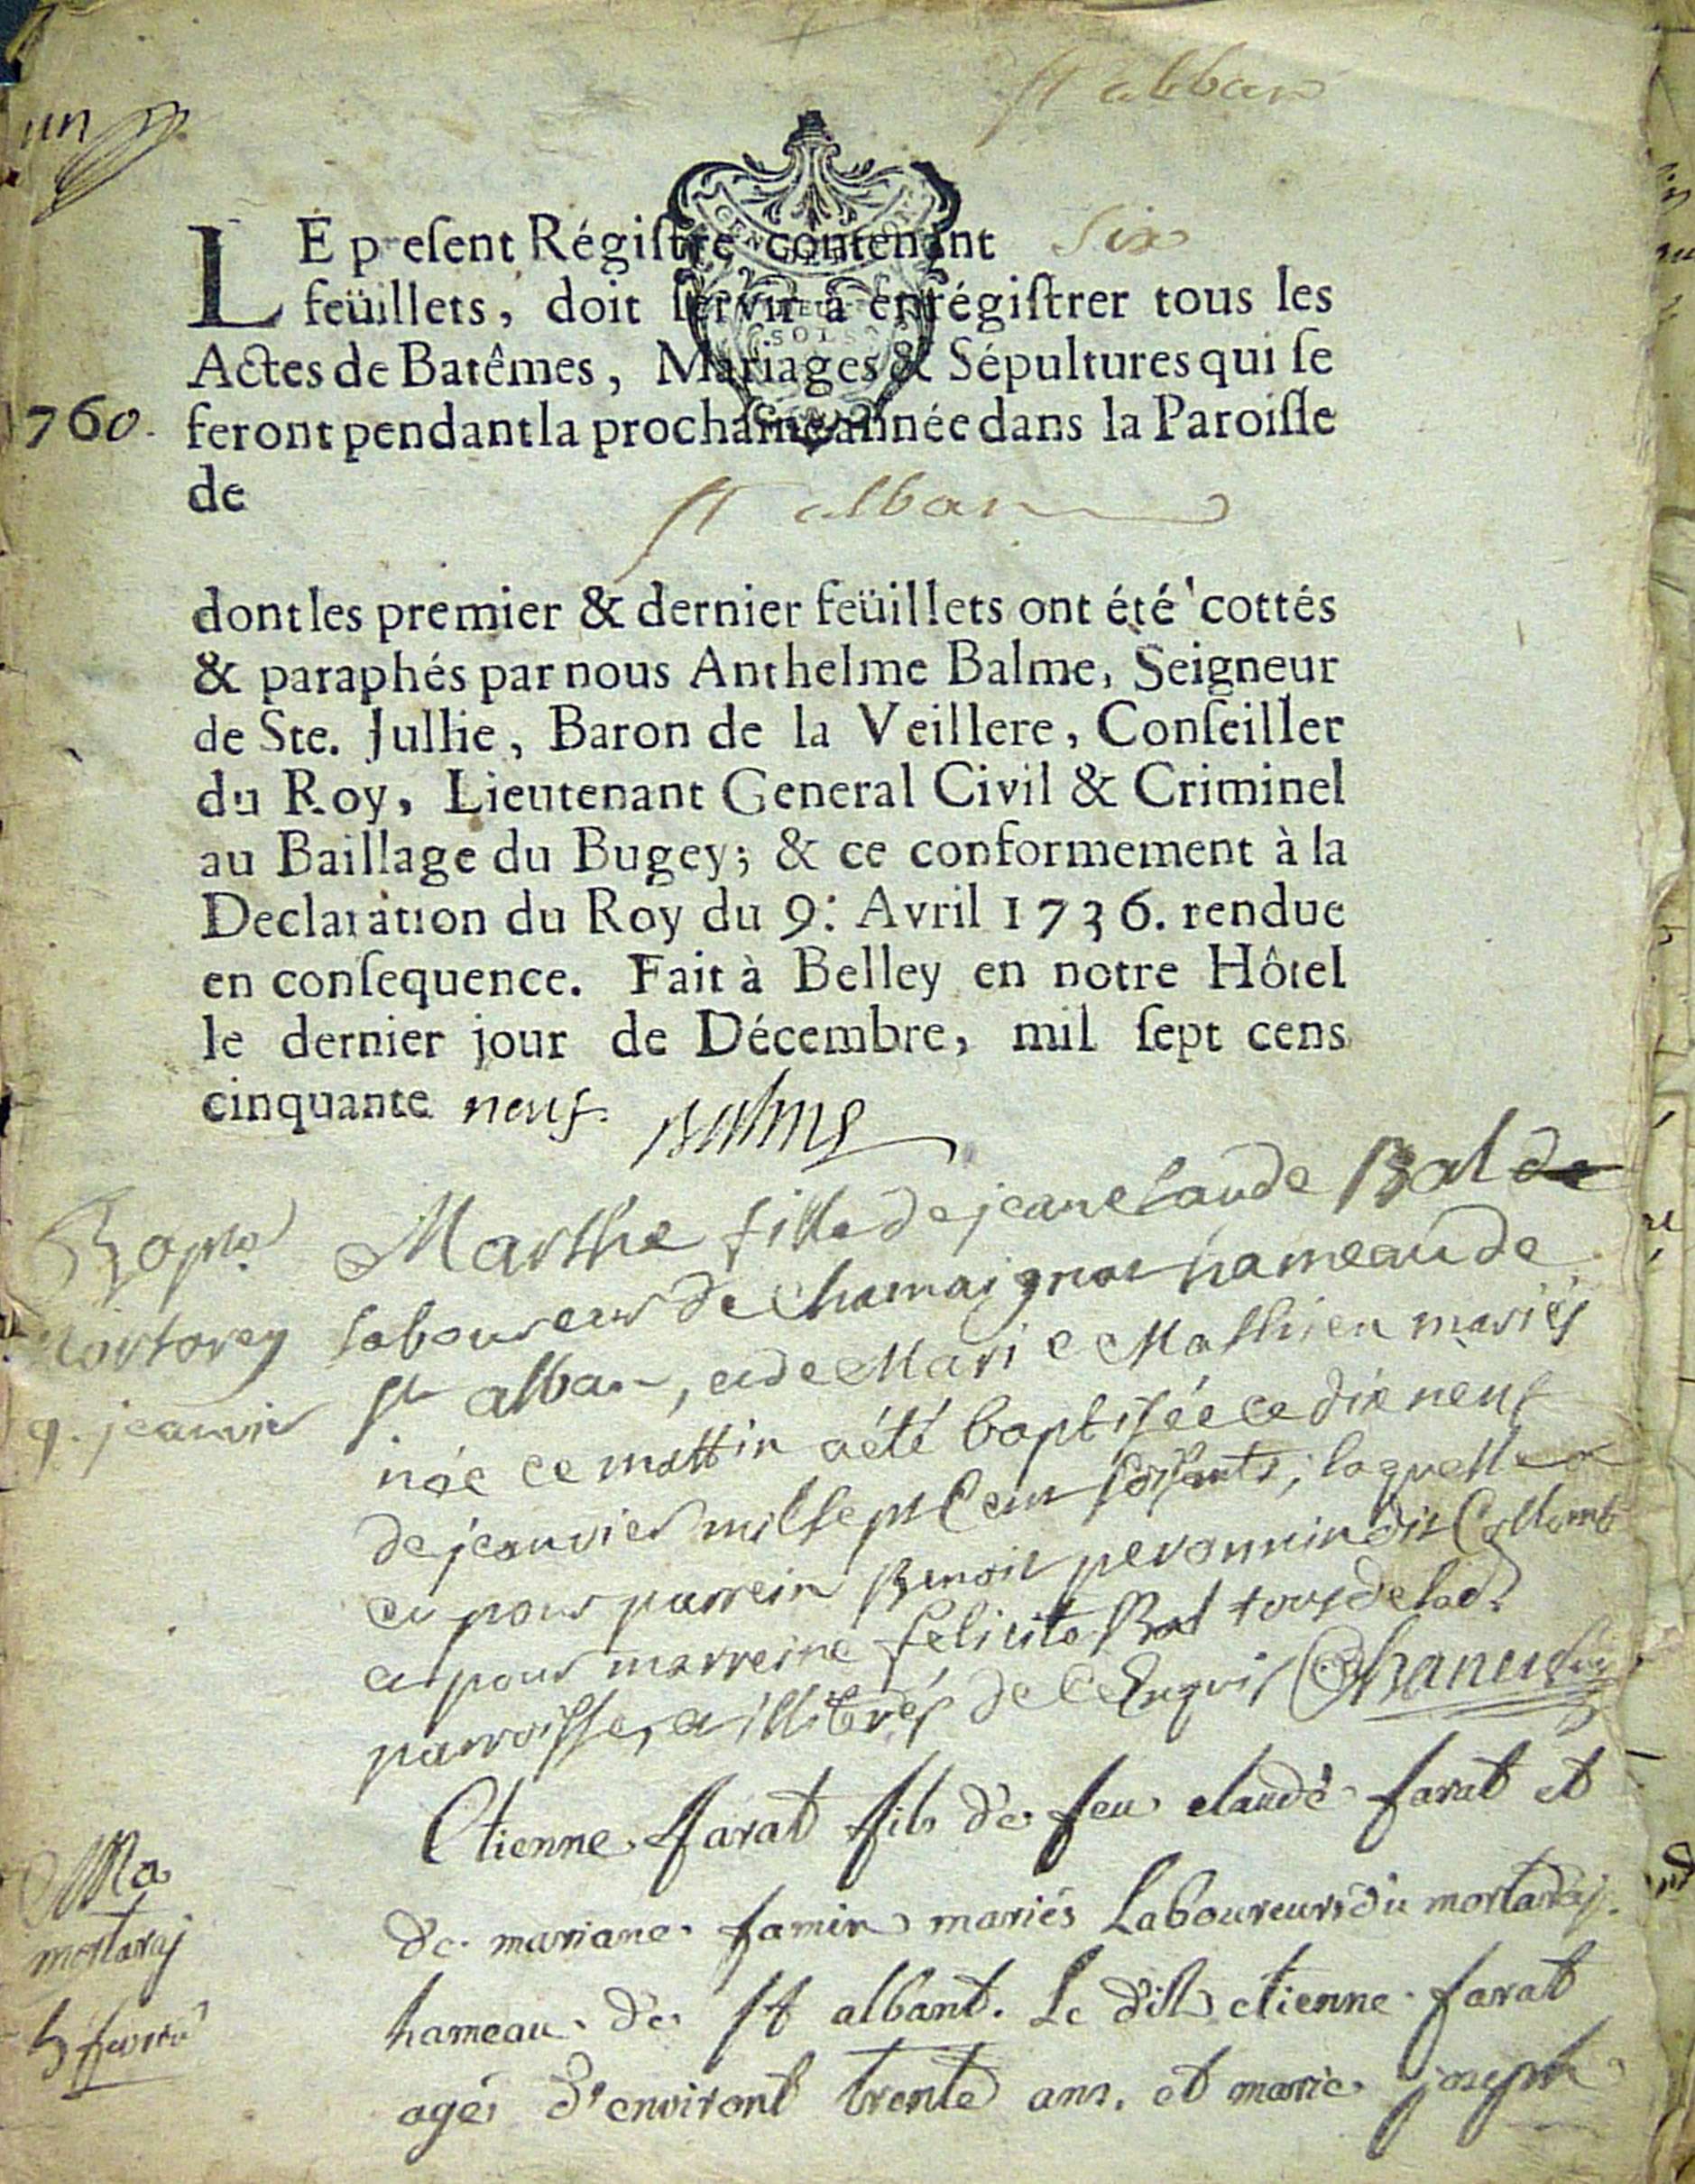 St alban
un
LE present Régistre contenant Six
feüillets, doit servir à enrégistrer tous les
Actes de Batêmes, Mariages & Sépultures qui se
760. feront pendant la prochaine année dans la Paroisse
de St alban
dont les premier & dernier feüillets ont été cottés
& paraphés par nous Anthelme Balme, Seigneur
de Ste. Jullie, Baron de la Veillere, Conseiller
du Roy, Lieutenant General Civil & Criminel
au Baillage du Bugey; & ce conformement à la
Declaration du Roy du 9: Avril 1736. rendue
en consequence. Fait à Belley en notre Hôtel
le dernier jour de Décembre, mil sept cens
cinquante neuf. Balme
Marthe fille de jeanclaude Bal de
laboureur de Chamaignat hameau de
St alban, et de Marie Mathieu mariés
9. jeanvier
née ce mattin a été baptisée ce dix neuf
de jeanvier mil sept Cent soissante, laquelle a
eu pour parrein Benoit peronnin dit Collomb
et pour marreine felicite Bal tous de lad.
parroisse, et illiterés de ce Enquis
Etienne farat fils de feu claude farat et
Ma
de mariane famin mariés Laboureurs du mortaraj
mortaraj
hameau de St albant. Le dit etienne farat
5 fevrie
agé d'environt trente ans. et marie joseph